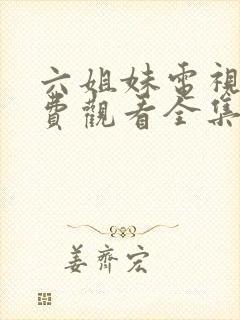 六姐妹電視
費觀看全集
姜齊宏